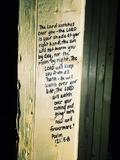 The Lord watches
over you - the LORD
is your shade at your
right hand; the sun
will not harm you
by day, nor the
moon by night. The
LORD will keep
you from all
harm - he will
watch over your
life; the LORD
will watch
over your
coming and
going both
now and
forevermore!
Psalm
121:5-8